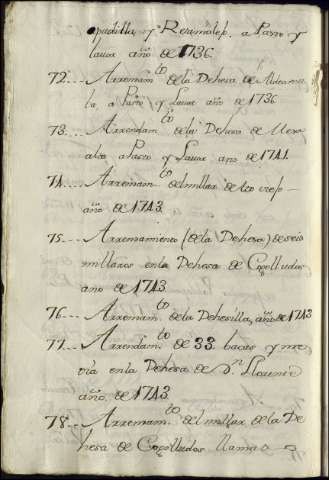 padilla, y Resmoles. a Pasto y
lauor año de 1736.
72.... Arrendam.to de la Dehesa de Aldeanue
la a Pasto, y Lauor año de 1736
73... Arrendam.to de la Dehesa de Mer
alto a Pasto y Lauor ano de 1741
74.... Arrendam.to del millar de los
año de 1743.
75... Arrendamiento (de la Dehesa) de seis
millares en la Dehesa de Cogolludos
ano de 1743
76.... Arrendam.to de la Dehesilla, año de 1743
77... Arrendam.to de 33. bacas y me
dia en la Dehesa de d.n Llorente
año de 1743.
78... Arrendam.to del millar de la De
hesa de Cogolludos llamado